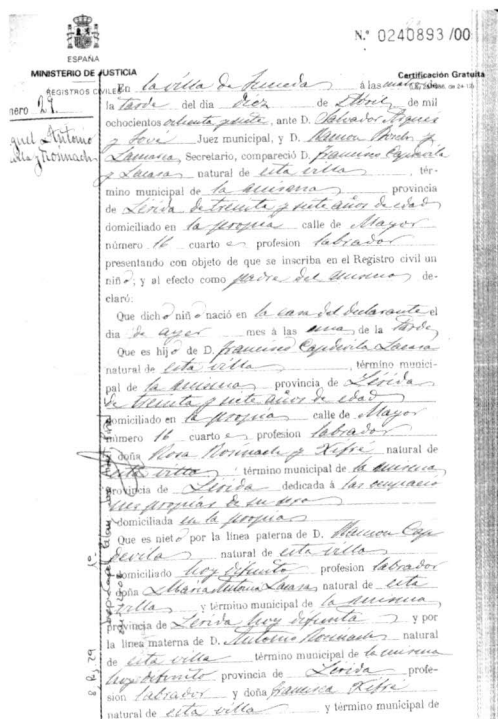 N.º 0240893/00
ESPAÑA
MINISTERIO DE JUSTICIA
REGISTROS CIVILES
Certificación Gratuita
número 29.
Miguel Antonio
En la villa de a las cuatro
tarde del día diez de Abril de mil
ochocientos ochenta y siete, ante D. Salvador
y Juez municipal, y D. Ramon y
Secretario, compareció D. Francisco Capdevila
y Lacasa natural de esta villa, tér-
mino municipal de la misma provincia
de Lérida de treinta y siete años de edad
domiciliado en la propia calle de Mayor
número 16 cuarto profesion labrador
presentando con objeto de que se inscriba en el Registro civil un
niño; y al efecto como padre del mismo de-
claró:
Que dicho niño nació en la casa del declarante el
día de ayer mes á las una de la tarde
Que es hijo de D. Francisco Capdevila Lacasa
natural de esta villa, término munici-
pal de la misma provincia de Lérida
de treinta y siete años de edad
domiciliado en la propia calle de Mayor
número 16 cuarto profesion labrador
doña Rosa y Xifré natural de
esta villa término municipal de la misma
provincia de Lérida dedicada á las
propias de su sexo
domiciliada en la propia
Que es nieto por la línea paterna de D. Ramon Cap
devila natural de esta villa
domiciliado hoy difunto profesion labrador
doña Maria Antonia Lacasa natural de esta
villa y término municipal de la misma
provincia de Lérida hoy difunta y por
la línea materna de D. Antonio natural
de esta villa término municipal de la misma
hoy difunto provincia de Lérida profe-
sion labrador y doña Francisca Xifré
natural de esta villa y término municipal de